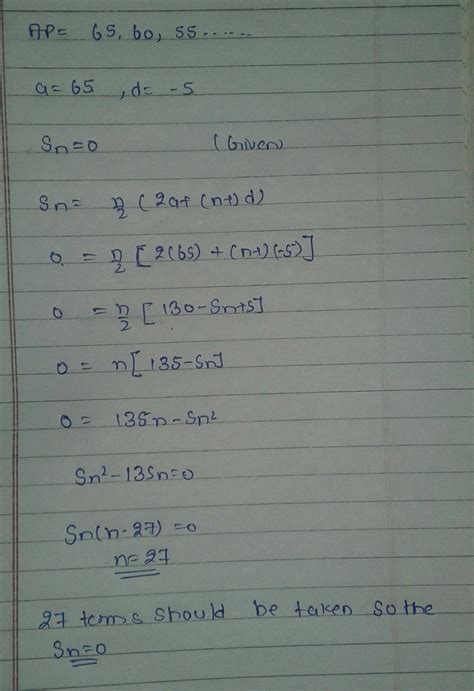 AP= 65, 60, 55......
a= 65 , d= -5
Sn=0 (Given)
Sn= n/2 (2a+ (n-1) d)
0 = n/2 [2(65) + (n-1)(-5)]
0 = n/2 [130-5n+5]
0 = n[135-5n]
0 = 135n-5n²
5n²-135n=0
5n(n-27) =0
n=27
27 terms should be taken so the
Sn=0